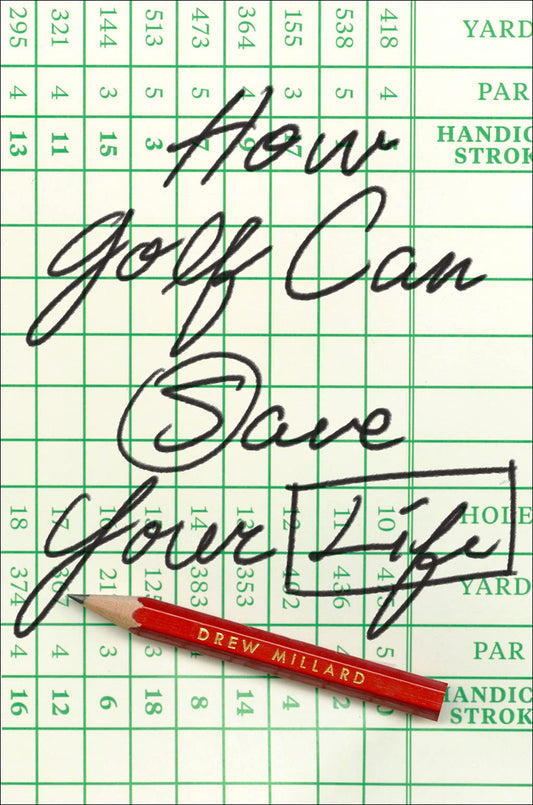 295 321 144 513 473 364 155 538 418 YARD
4 4 3 5 5 4 3 5 4 PAR
13 11 15 3 9 17 HANDIC
STROK
How
Golf Can
Save
Your Life
18 17 14 12 11 10 HOLE
374 125 383 353 436 YARD
DREW MILLARD
4 4 3 5 PAR
16 12 6 18 8 14 4 2 HANDIC
STROK